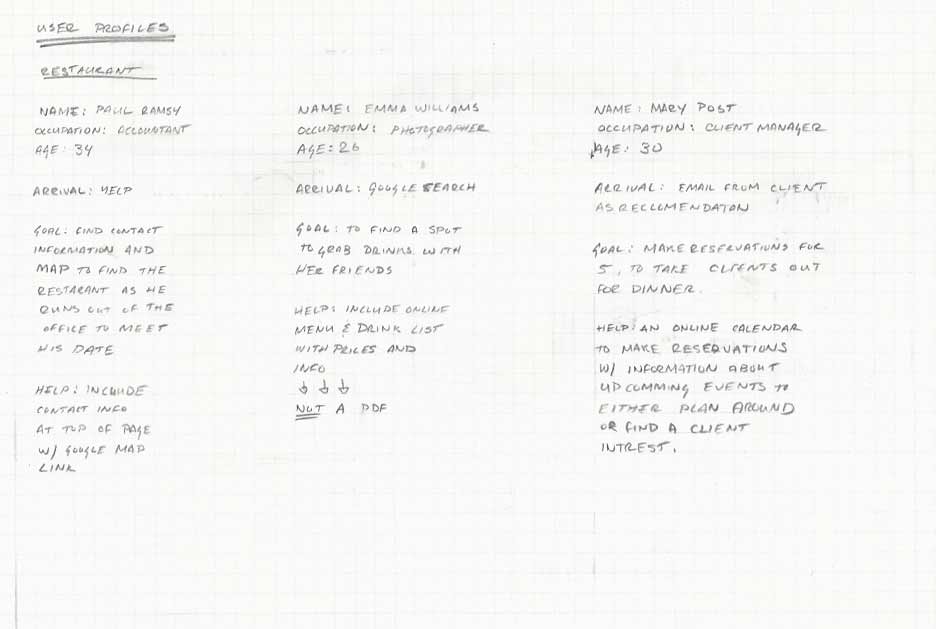 USER PROFILES
RESTAURANT
NAME: PAUL RAMSY
OCCUPATION: ACCOUNTANT
AGE: 34
ARRIVAL: YELP
GOAL: FIND CONTACT
INFORMATION AND
MAP TO FIND THE
RESTARANT AS HE
RUNS OUT OF THE
OFFICE TO MEET
HIS DATE
HELP: INCLUDE
CONTACT INFO
AT TOP OF PAGE
W/ GOOGLE MAP
LINK
NAME: EMMA WILLIAMS
OCCUPATION: PHOTOGRAPHER
AGE: 26
ARRIVAL: GOOGLE SEARCH
GOAL: TO FIND A SPOT
TO GRAB DRINKS WITH
HER FRIENDS
HELP: INCLUDE ONLINE
MENU & DRINK LIST
WITH PRICES AND
INFO
↓ ↓ ↓
NOT A PDF
NAME: MARY POST
OCCUPATION: CLIENT MANAGER
AGE: 30
ARRIVAL: EMAIL FROM CLIENT
AS RECCOMENDATON
GOAL: MAKE RESERVATIONS FOR
5, TO TAKE CLIENTS OUT
FOR DINNER.
HELP: AN ONLINE CALENDAR
TO MAKE RESERVATIONS
W/ INFORMATION ABOUT
UPCOMMING EVENTS TO
EITHER PLAN AROUND
OR FIND A CLIENT
INTREST.